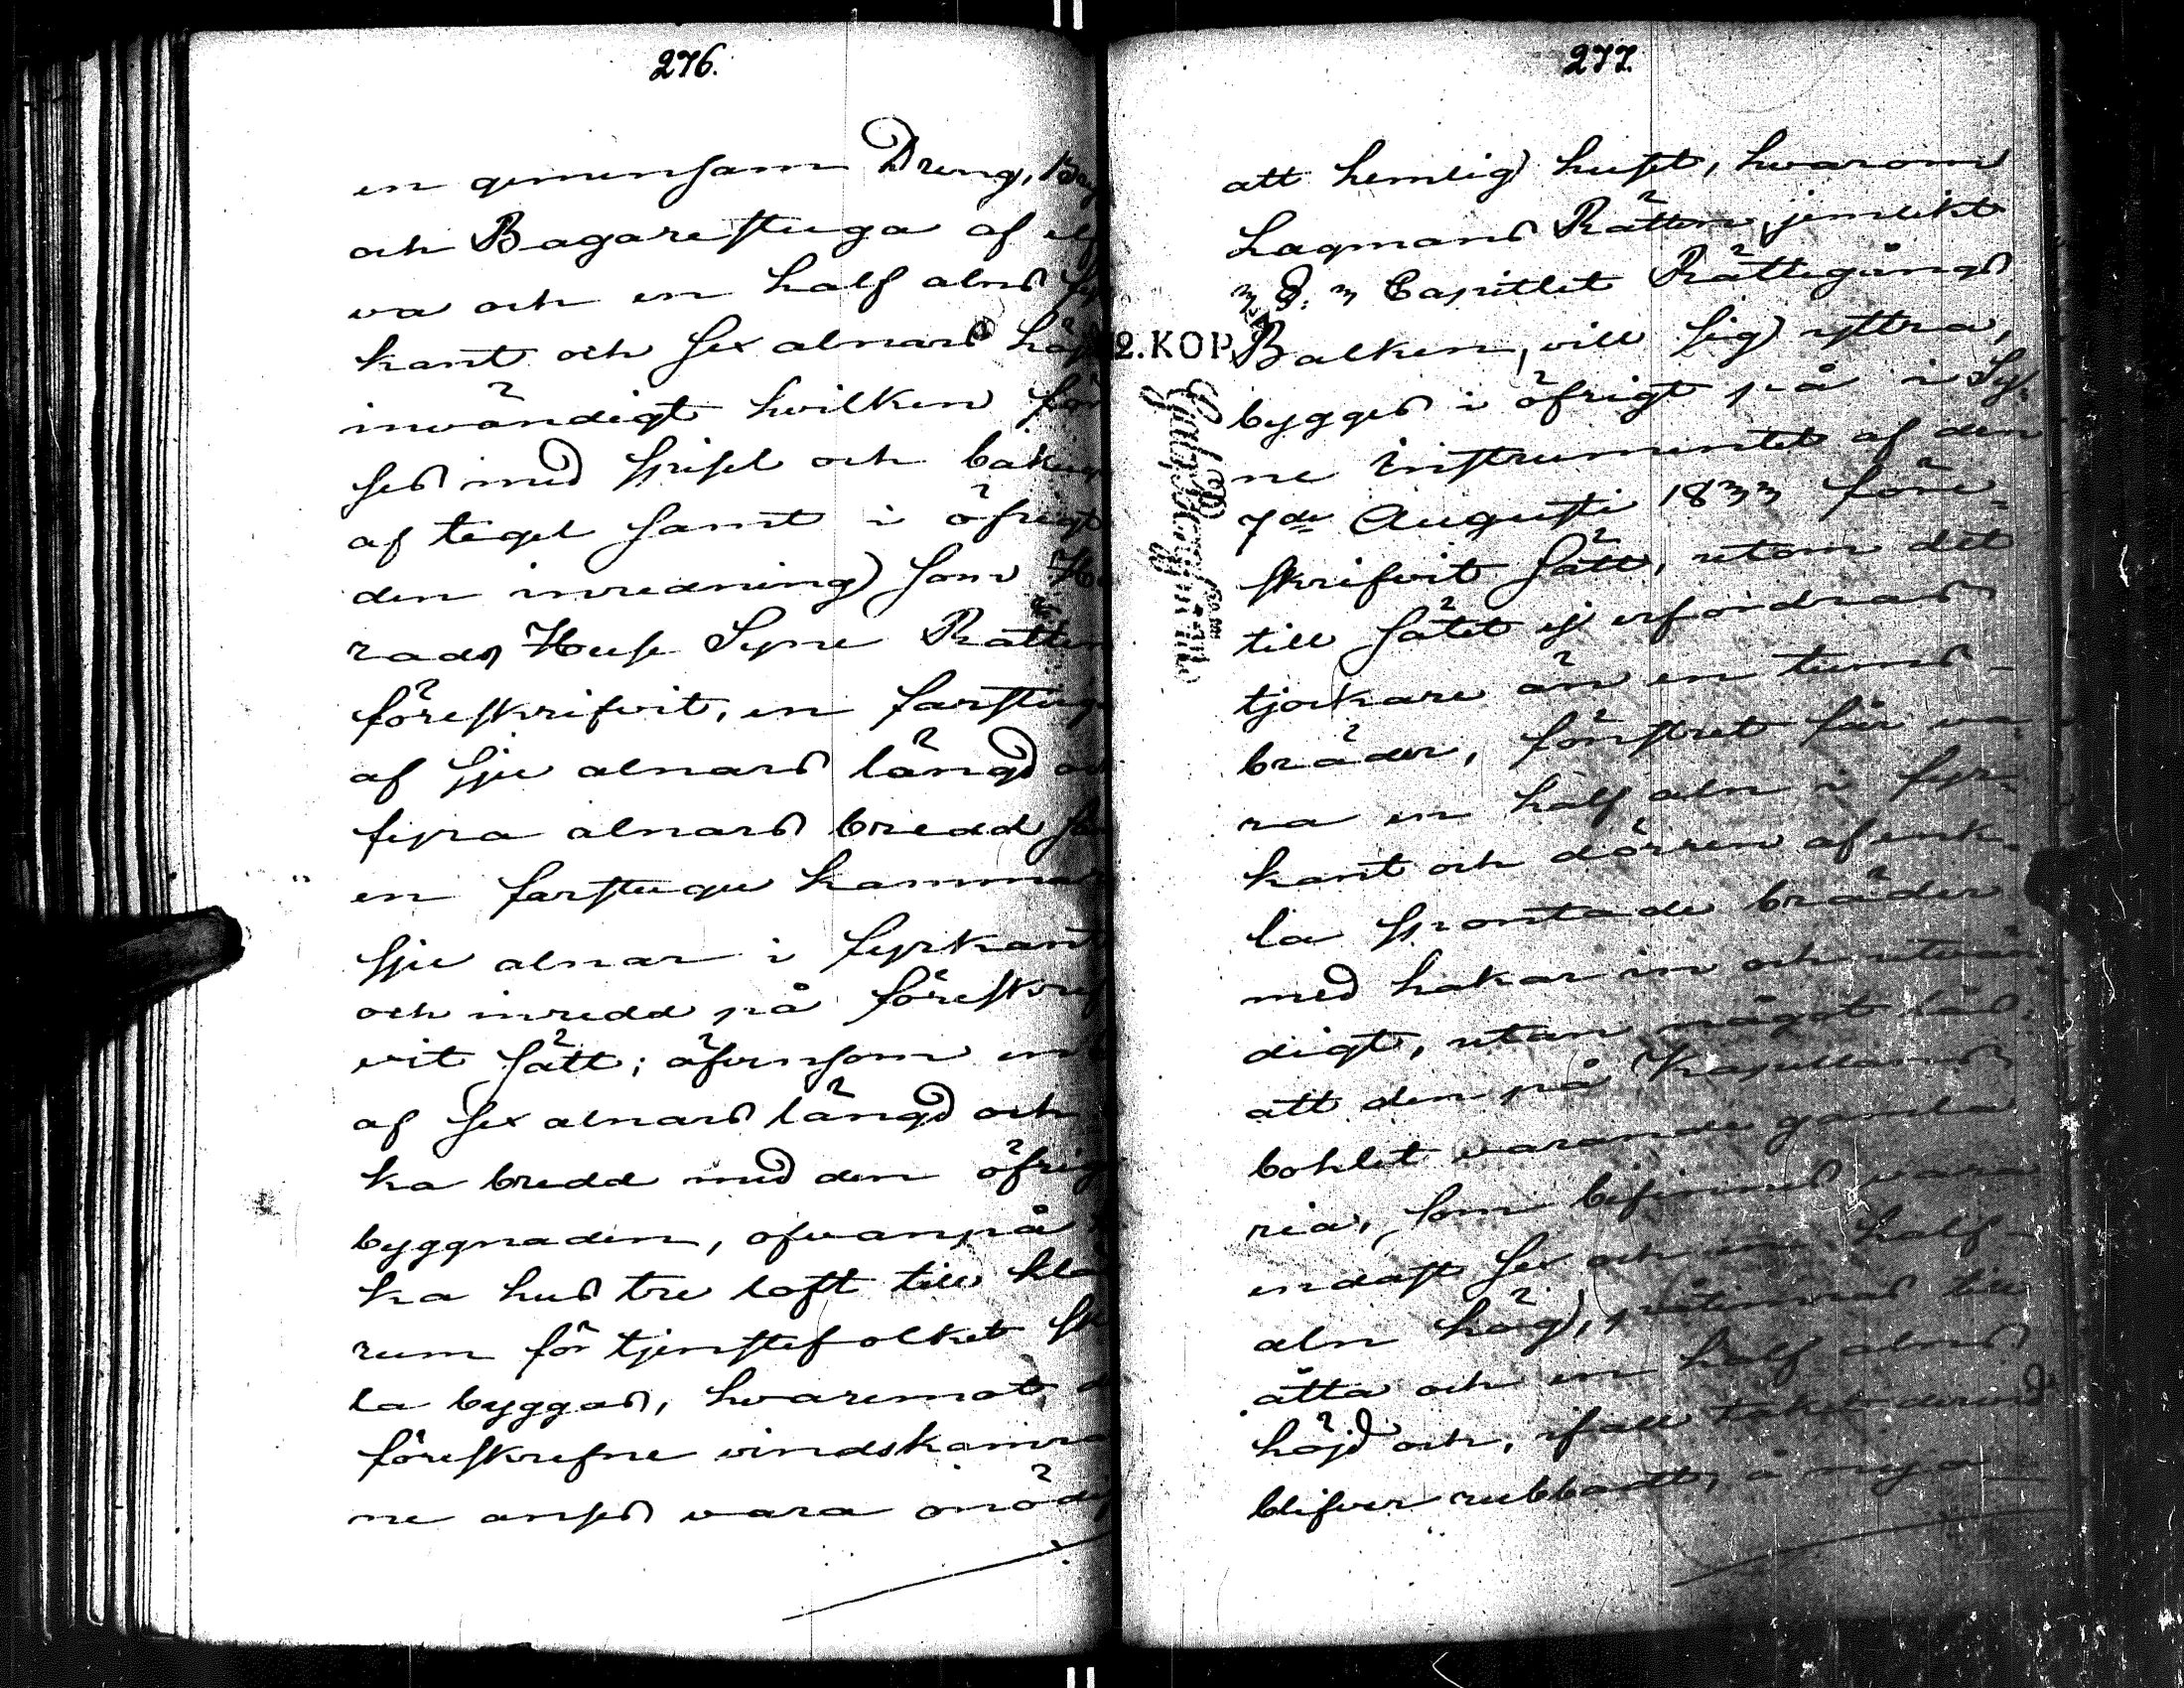 276.
en gemensam Dreng, Bag
och Bagarestuga af elf
va och en half alns fyr
kant och sex alnars höj
invändigt hvilken för
ses med spisel och bakug
af tegel samt i öfrigt
den inredning som Hä
rads Huse Syne Rätten
föreskrifvit, en farstug
af sju alnars längd oc
fyra alnars bredd sa
en farstugu kammar
sju alnar i fyrkant
och inredd på föreskrif
vit sätt; äfvensom en
af sex alnars längd och
ka bredd med den öfrig
byggnaden, ofvanpå
ka hus tre loft till kläd
rum för tjenstefolket sk
la byggas, hvaremot d
föreskrefne vindskamra
ne anses vara onödi
277.
att hemlig huset, hvarom
Lagmans Rätten jemlikt
3 §. 3 Capitlet Rättegångs
2.KOP
Balken, vill sig yttra,
bygges i öfrigt på i Sy-
ne Instrumentet af den
7de Augusti 1833 före-
skrifvit sätt, utom det
till sätet ej erfordras
tjockare än en tums
bräder, fönstret får va-
ra en half aln i fyr-
kant och dörren af enk-
la spontade bräder
med hakar in och utvän-
digt, utan något lås;
att den på Kapellans
bohlet varande gamla
ria, som befinnes vara
endast sex och en half
aln hög, påtimras till
åtta och en half alns
höjd och, ifall taket derund
blifver rubbadt, å nya